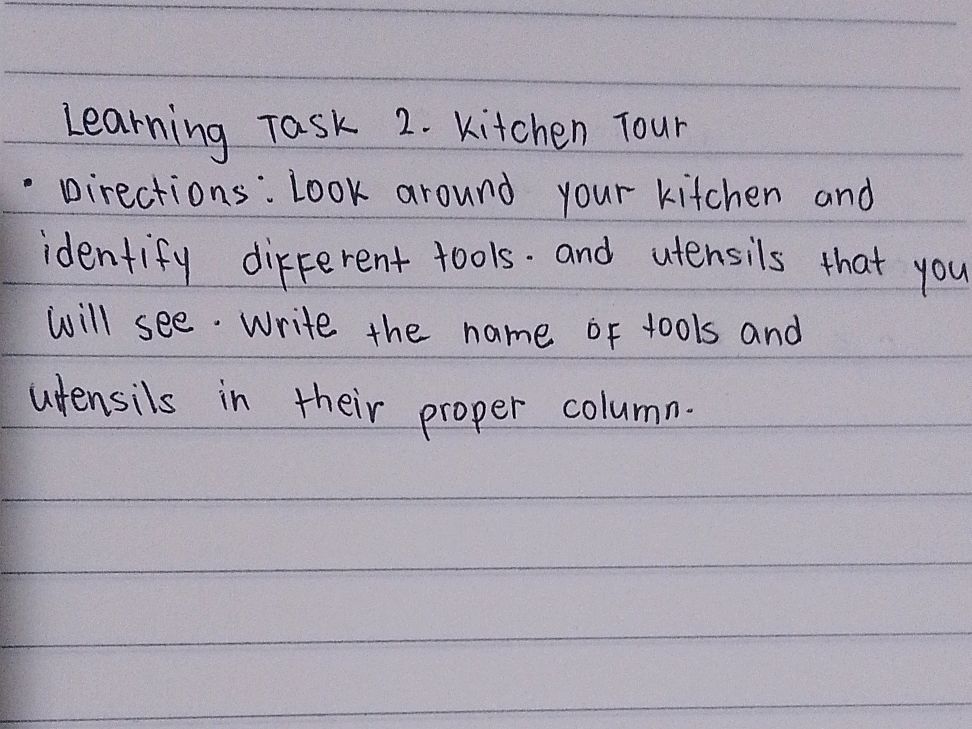 Learning Task 2. Kitchen Tour
• Directions: Look around your kitchen and
identify different tools. and utensils that you
will see. Write the name of tools and
utensils in their proper column.